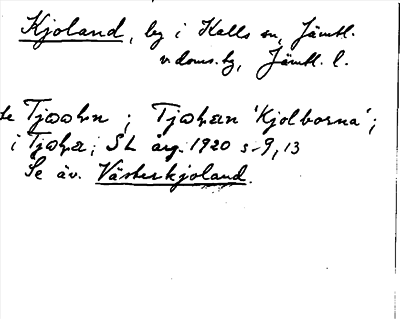 Kjoland, by i Kalls sn, Jämtl.
v. doms.hg, Jämtl. l.
Tjoohn ; Tjohan 'Kjolborna' ;
i Tjoha ; SL årg. 1920 s. 9, 13
Se äv. Västerkjoland.